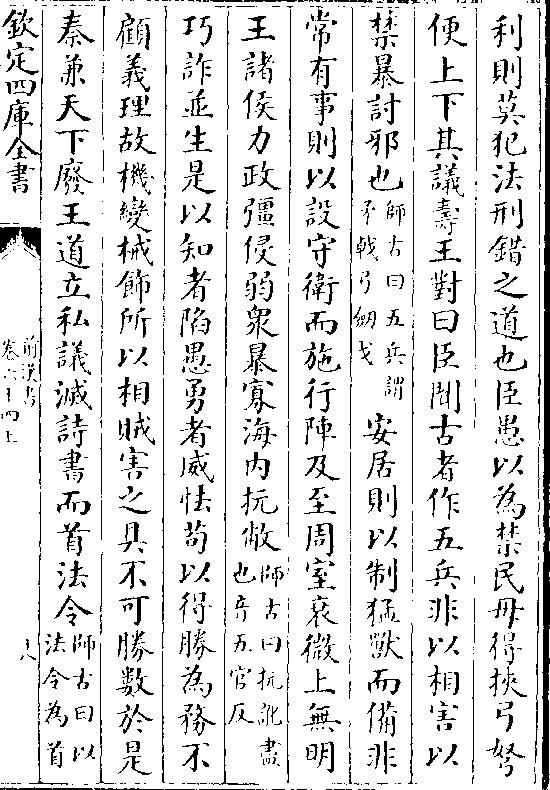 利則莫犯法刑錯之道也臣愚以為禁民毋得挾弓弩
便上下其議壽王對曰臣聞古者作五兵非以相害以
禁暴討邪也師古曰五兵謂矛戟弓劔戈安居則以制猛獸而備非
常有事則以設守衛而施行陣及至周室衰微上無明
王諸侯力政彊侵弱衆暴寡海内抏敝師古曰抏訛盡也音五官反
巧詐並生是以知者陷愚勇者威怯苟以得勝為務不
顧義理故機變械飾所以相賊害之具不可勝數於是
秦兼天下廢王道立私議滅詩書而首法令師古曰以法令為首
欽定四庫全書
前漢書
卷六十四上
十八